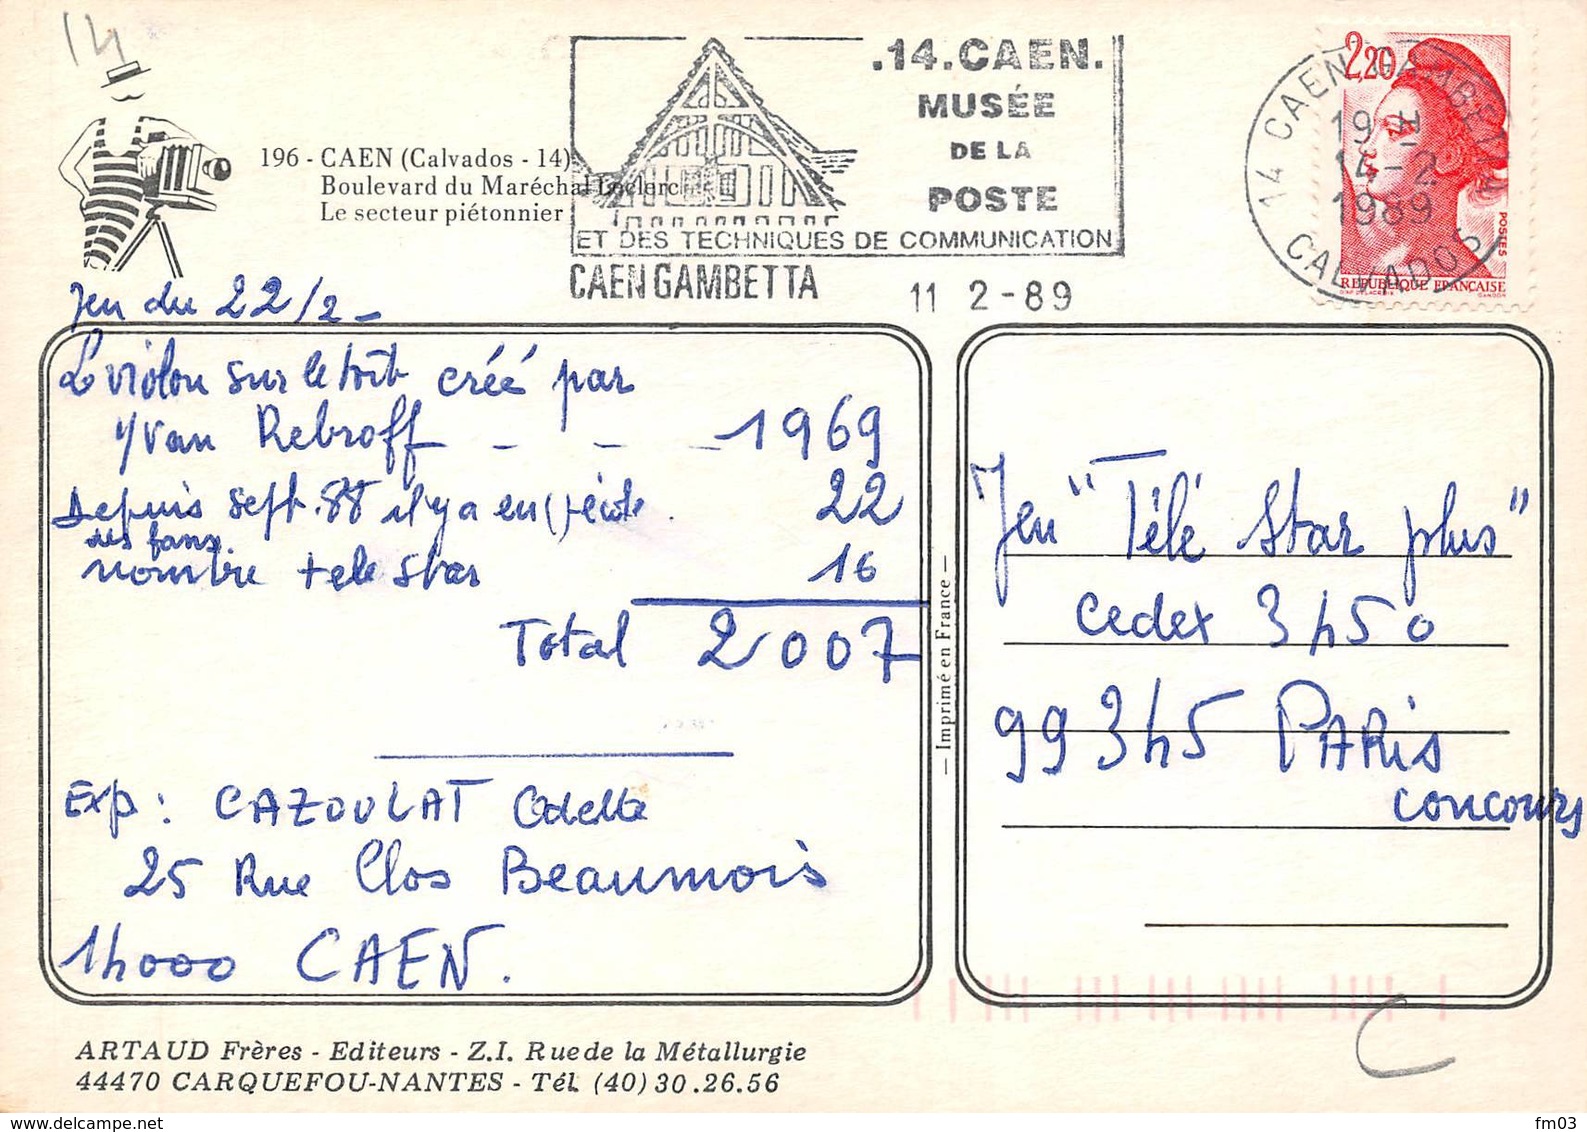 14
196 - CAEN (Calvados - 14)
Boulevard du Maréchal Leclerc
Le secteur piétonnier
.14.CAEN.
MUSÉE
DE LA
POSTE
ET DES TECHNIQUES DE COMMUNICATION
CAEN GAMBETTA
11 2 - 89
14 CAEN GAMBETTA
19 H
14 - 2
1989
CALVADOS
2,20
POSTES
REPUBLIQUE FRANÇAISE
Jeu du 22/2 -
Le violon sur le toit créé par
Yvan Rebroff - - - 1969
Depuis sept. 88 il y a eu () école . 22
des fans
nombre tele star 16
Total 2007
Exp : CAZOULAT Odette
25 Rue Clos Beaumois
14000 CAEN.
- Imprimé en France -
Jeu "Télé Star plus"
Cedex 3450
99345 PARIS
concours
ARTAUD Frères - Editeurs - Z.I. Rue de la Métallurgie
44470 CARQUEFOU-NANTES - Tél. (40) 30.26.56
fm03